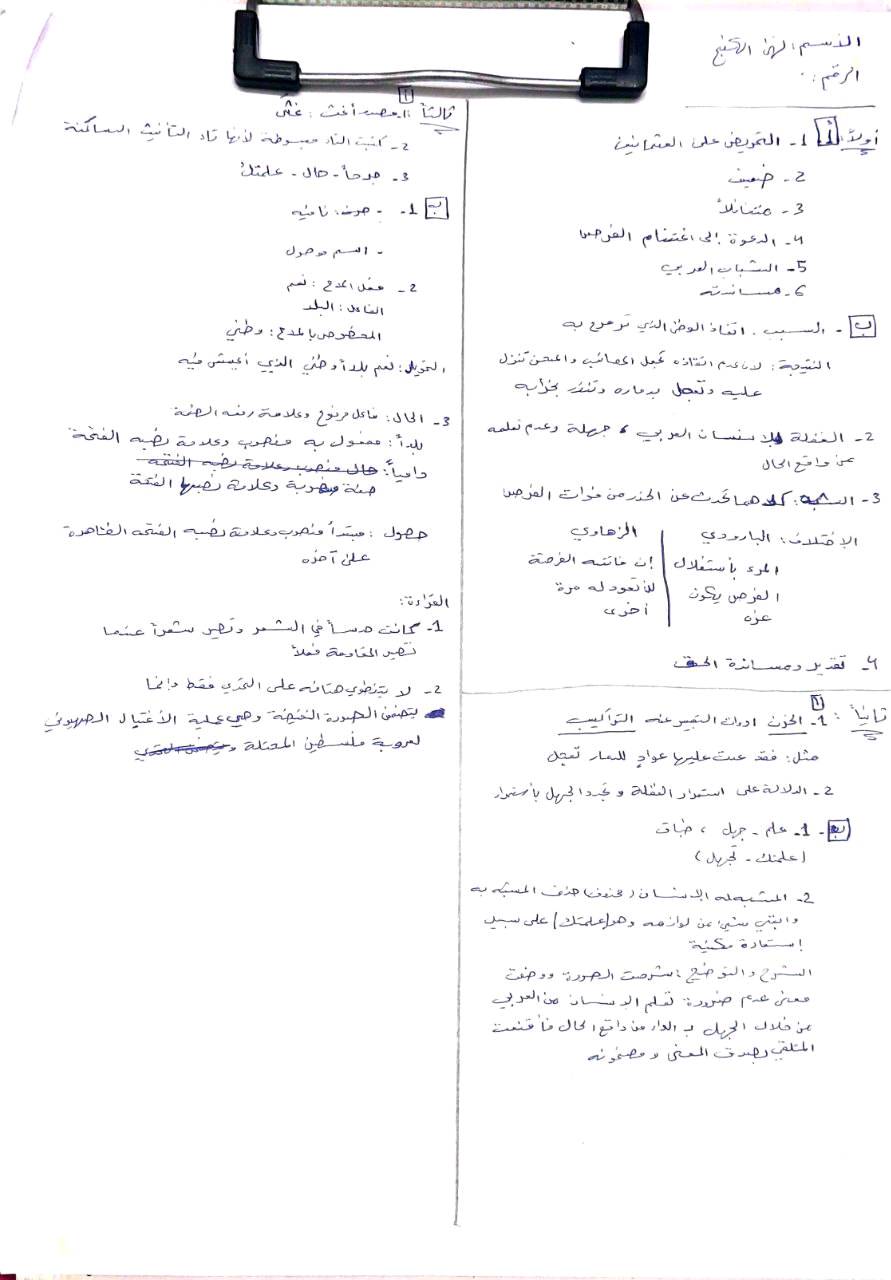 الاسم:
الرقم:
أولاً: أ 1- التحريض على العثمانيين
2- ضعيف
3- متفائلاً
4- الدعوة إلى اغتنام الفرص
5- الشباب العربي
6- مساندته
ب - السبب: انقاذ الوطن الذي ترعرع به
النتيجة: لان عدم انقاذه يجعل المصائب والمحن تنزل
عليه وتعجل بدماره وتنذر بخرابه
2- الغفلة للإنسان العربي، جهلة وعدم تعلمه
من واقع الحال
3- الشبه: كلاهما تحدث عن الحذر من فوات الفرص
الإختلاف: البارودي
المرء بأستغلال
الفرص يكون
عزه
الزهاوي
إن فاتته الفرصة
لا تعود له مرة
أخرى
4- تقدير ومساندة الحق
ثانياً: أ 1- الحزن ادوات التعبير عنه التراكيب
مثل: فقد عبث عليها عوادٍ للدمار تعجل
2- الدلالة على استمرار الغفلة و تجدد الجهل بأستمرار
ب - 1- علم - جهل ، طباق
(علمتك - تجهل)
2- المشبه له الإنسان (محذوف) حذف المشبه به
وابقي شيئ من لوازمه وهو (علمتك) على سبيل
إستعارة مكنية
الشرح والتوضيح: شرحت الصورة ووضحت
معنى عدم ضرورة تعلم الإنسان من العربي
من خلال الجهل بـ الدار من واقع الحال فأقنعت
المتلقي بصدق المعنى ومضمونه
ثالثاً أ
2- كتبت التاء مبسوطة لأنها تاء التأنيث الساكنة
3- جدحاً - حال - علمتك
ب 1- - حرف: نافيه
- اسم موصول
2- فعل المدح: نعم
الفاعل: البلد
المخصوص بالمدح: وطني
التحويل: نعم بلداً وطني الذي أعيش فيه
3- الحال: فاعل مرفوع وعلامة رفعه الضمة
بلداً: مفعول به منصوب وعلامة نصبه الفتحة
دامياً: حال منصوب وعلامة نصبه الفتحة
صفة منصوبة وعلامة نصبها الفتحة
حصول: مبتدأ منصوب وعلامة نصبه الفتحة الظاهرة
على آخره
القراءة:
1- كانت درساً في الشعر وتصير شعراً عندما
تصير المقاومة فعلاً
2- لا ينطوي هتافه على التحدي فقط وإنما
يتضمن الصورة النقيضة وهي عملية الأغتيال الصهيوني
لعروبة فلسطين المحتلة